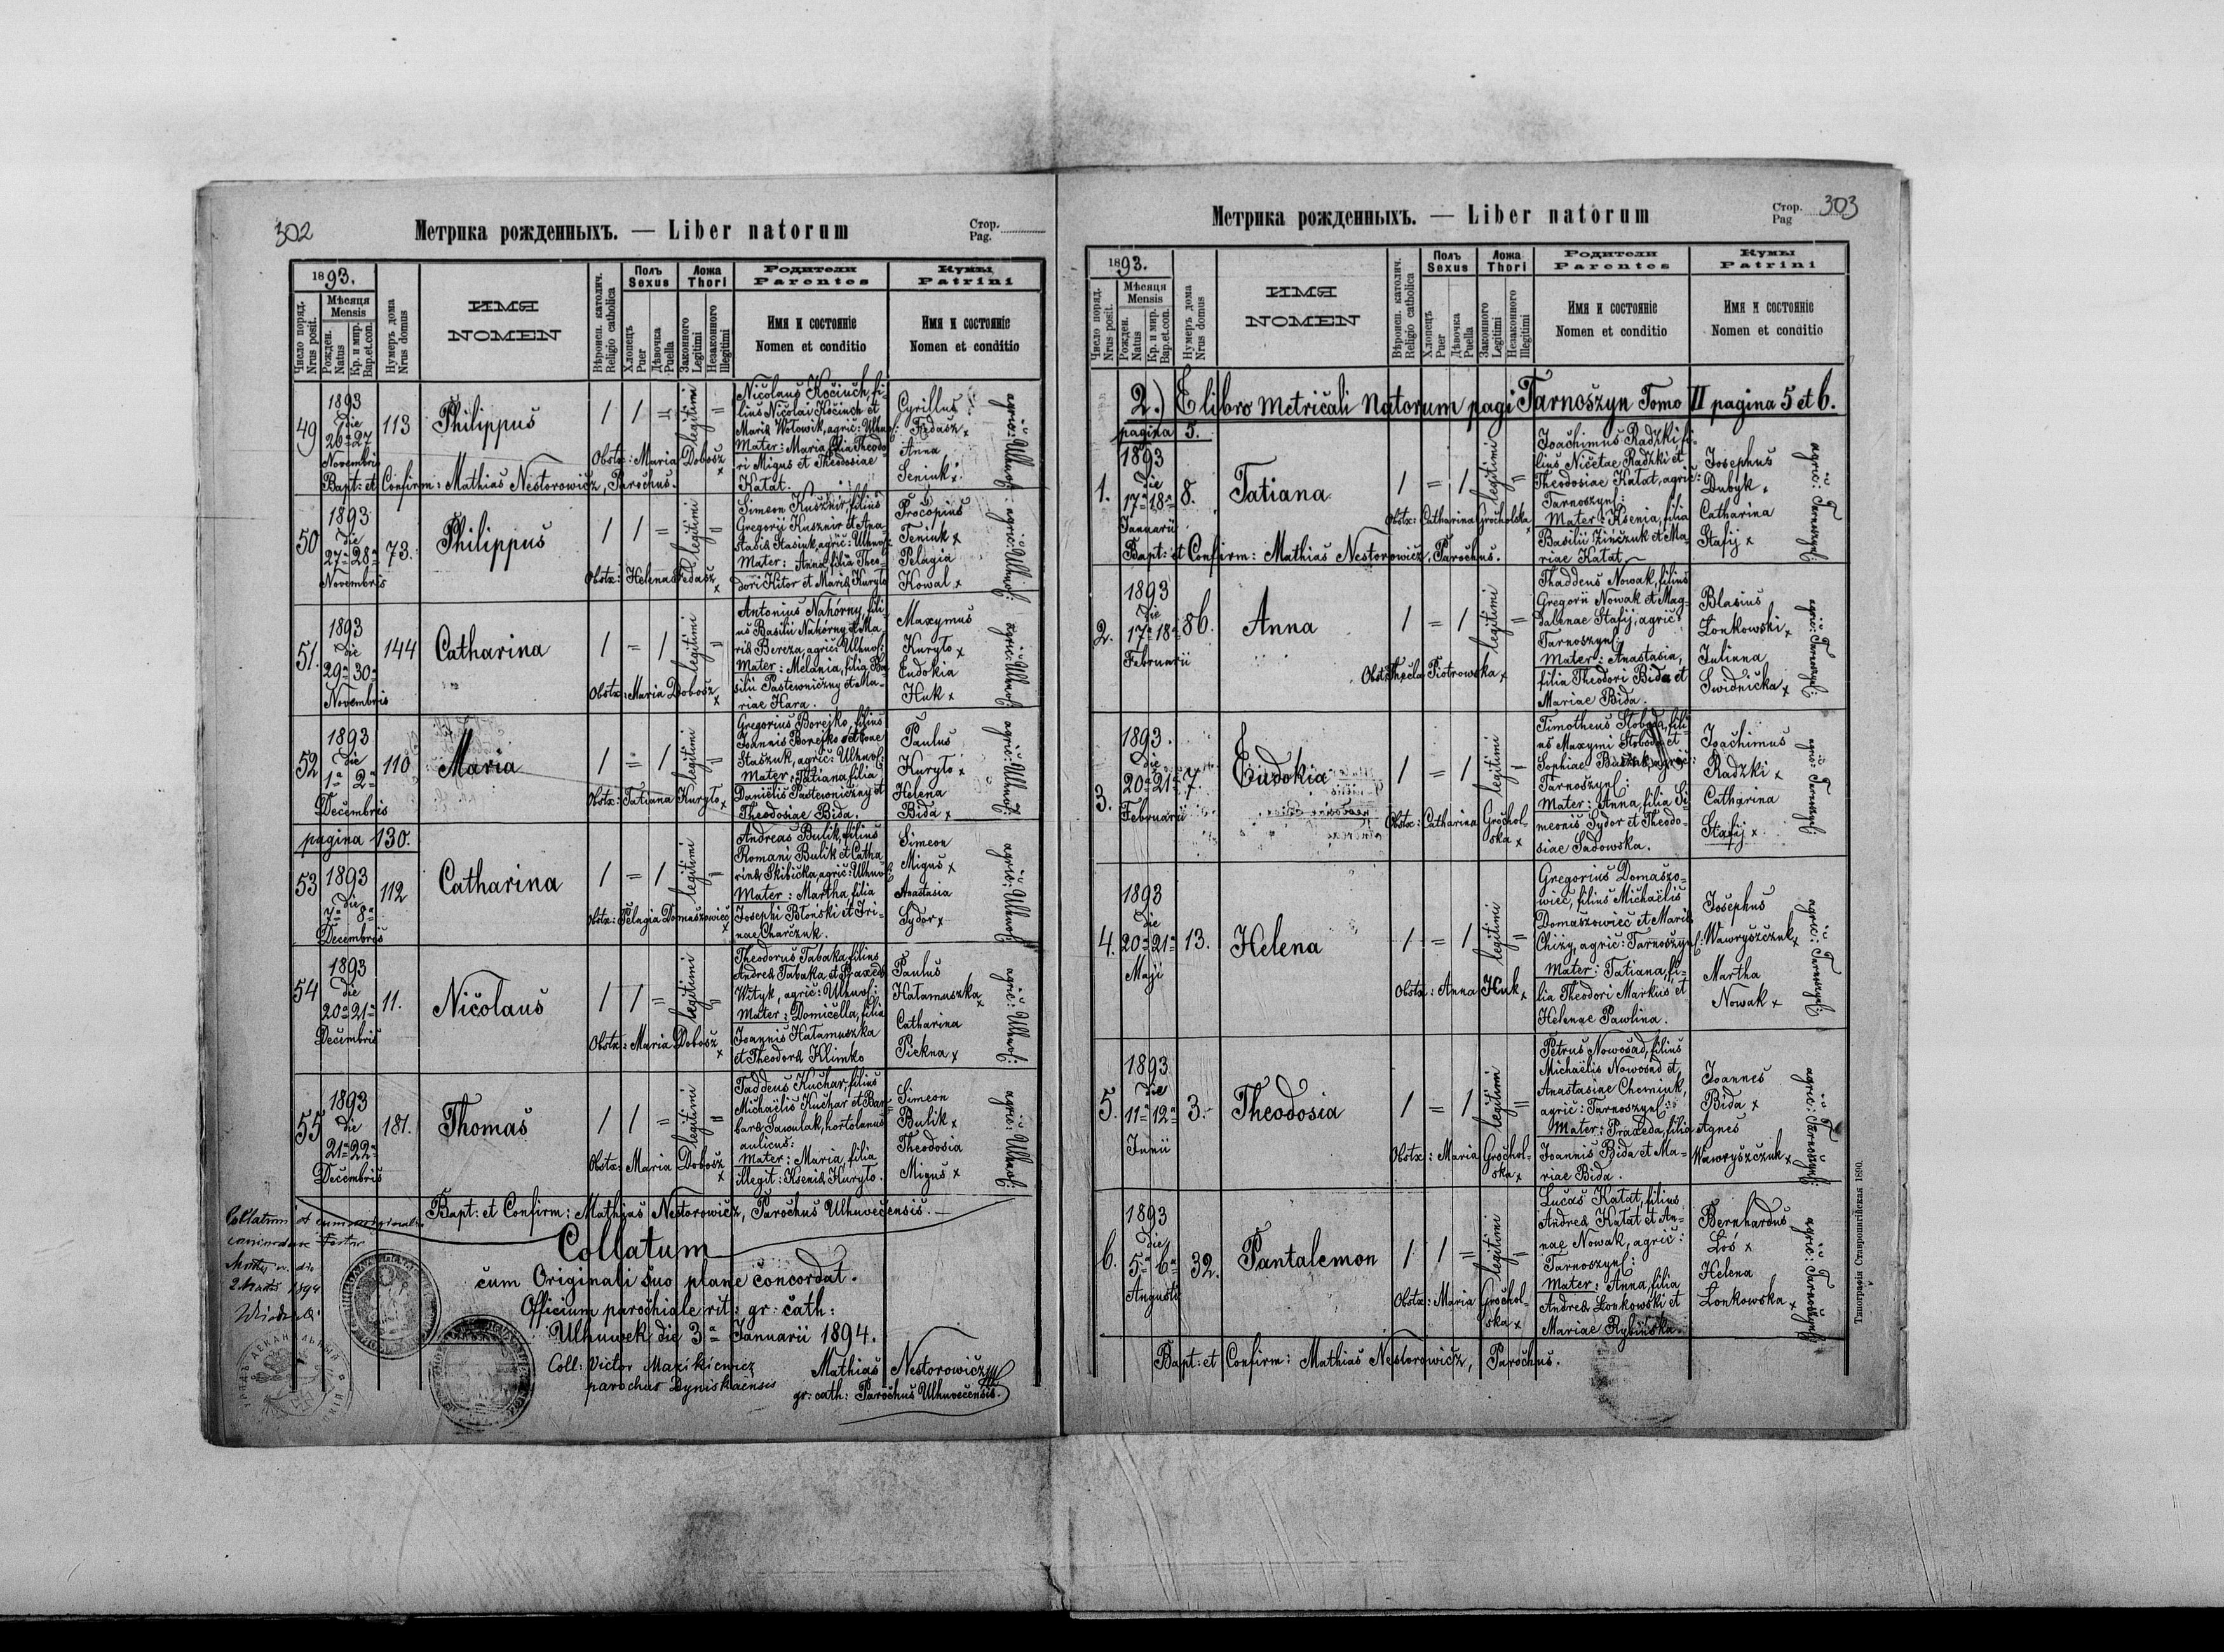 302
Метрика рожденныхъ. — Liber natorum
Стор.
Pag.
1893.
Число поряд.
Nrus posit.
Мѣсяця
Mensis
Рожден.
Natus
Кр. и мир.
Bap.et.con.
Нумеръ дома
Nrus domus
ИМЯ
NOMEN
Вѣроиспов. католич.
Religio catholica
Полъ
Sexus
Хлопецъ
Puer
Дѣвочка
Puella
Ложа
Thori
Законного
Legitimi
Незаконного
Illegitimi
Родители
Parentes
Имя и состояніе
Nomen et conditio
Кумы
Patrini
Имя и состояніе
Nomen et conditio
49
1893
die
26ª 27
Novembris
113
Philippus
1 1 = legitimi =
Obstx: Maria Dobosz x
Nicolaus Kociuch, fi-
lius Nicolai Kociuch et
Mariæ Wołowik, agric: Uhnov:
Mater: Maria filia Theodo-
ri Migus et Theodosiae
Katat.
Cyrillus
Fedasz x
Anna
Seniuk x
agric: Uhnov:
Bapt: et Confirm: Mathias Nestorowicz, Parochus.
50
1893
die
27ª 28ª
Novembris
73.
Philippus
1 1 = legitimi =
Obstx: Helena Fedasz x
Simeon Kusznir, filius
Gregorii Kusznir et Ana-
stasiæ Stasiuk, agric: Uhnov:
Mater: Anna filia Theo-
dori Kitor et Mariæ Kuryło
Procopius
Seniuk x
Pelagia
Kowal x
agric: Uhnov:
51.
1893
die
29ª 30ª
Novembris
144
Catharina
1 = 1 legitimi =
Obstx: Maria Dobosz x
Antonius Nahórny, fili-
us Basilii Nahórny et Ma-
riæ Bereza, agric: Uhnov:
Mater: Melania, filia Ba-
silii Pastewniczny et Ma-
riae Hara.
Maxymus
Kuryło x
Eudokia
Huk x
agric: Uhnov:
52
1893
die
1ª 2ª
Decembris
110
Maria
1 = 1 legitimi =
Obstx: Tatiana Kuryło x
Gregorius Borejko, filius
Joannis Borejko et
Staszuk, agric: Uhnov:
Mater: Tatiana filia
Daniëlis Pastewniczny et
Theodosiae Bida.
Paulus
Kuryło x
Helena
Bida x
agric: Uhnov:
pagina 130.
53
1893
die
7ª 8ª
Decembris
112
Catharina
1 = 1 legitimi =
Obstx: Pelagia Domaszowiec x
Andreas Bulik, filius
Romani Bulik et Catha-
rinæ Skibicka, agric: Uhnov:
Mater: Martha, filia
Josephi Błoński et Iri-
nae Charczuk.
Simeon
Migus x
Anastasia
Sydor x
agric: Uhnov:
54
1893
die
20ª 21ª
Decembris
11.
Nicolaus
1 1 = legitimi =
Obstx: Maria Dobosz x
Theodorus Tabaka, filius
Andreæ Tabaka et Praxedæ
Wityk, agric: Uhnov:
Mater: Domicella, filia
Joannis Hałamuszka
et Theodoræ Klimko
Paulus
Hałamuszka x
Catharina
Piekna x
agric: Uhnov:
55
1893
die
21ª 22ª
Decembris
181.
Thomas
1 1 = legitimi =
Obstx: Maria Dobosz x
Taddeus Kuchar, filius
Michaëlis Kuchar et Bar-
baræ Sawulak, hortolanus
aulicus:
Mater: Maria, filia
illegit: Kseniæ Kuryło.
Simeon
Bulik x
Theodosia
Migus x
agric: Uhnov:
Bapt: et Confirm: Mathias Nestorowicz, Parochus Ulhuvecensis. —
Collatum
cum Originali suo plane concordat.
Officium parochiale rit: gr: cath:
Ulhuwek die 3ª Januarii 1894.
Coll: Victor Mazikiewicz
parochus Dyniskaënsis
Mathias Nestorowicz
gr: cath: Parochus Ulhuvecensis.
Collatum
303
Метрика рожденныхъ. — Liber natorum
Стор.
Pag
1893.
Число поряд.
Nrus posit.
Мѣсяця
Mensis
Рожден.
Natus
Кр. и мир.
Bap.et.con.
Нумеръ дома
Nrus domus
ИМЯ
NOMEN
Вѣроиспов. католич.
Religio catholica
Полъ
Sexus
Хлопецъ
Puer
Дѣвочка
Puella
Ложа
Thori
Законного
Legitimi
Незаконного
Illegitimi
Родители
Parentes
Имя и состояніе
Nomen et conditio
Кумы
Patrini
Имя и состояніе
Nomen et conditio
2.) E libro metricali Natorum pagi Tarnoszyn Tomo II pagina 5 et 6.
pagina 5.
1.
1893
die
17ª 18ª
Januarii
8.
Tatiana
1 = 1 legitimi =
Obstx: Catharina Grocholska x
Joachimus Radzki fi-
lius Nicetae Radzki et
Theodosiae Katat, agric:
Tarnoszyn:
Mater: Ksenia, filia
Basilii Zinczuk et Ma-
riae Katat
Josephus
Dubyk x
Catharina
Stafij x
agric: Tarnoszyn:
Bapt: et Confirm: Mathias Nestorowicz, Parochus.
2.
1893
die
17ª 18ª
Februarii
86.
Anna
1 = 1 legitimi =
Obst: Thecla Piotrowska x
Thaddeus Nowak, filius
Gregorii Nowak et Mag-
dalenae Stafij, agric:
Tarnoszyn:
Mater: Anastasia,
filia Theodori Bida et
Mariae Bida.
Blasius
Łonkowski x
Julianna
Swidnicka x
agric: Tarnoszyn:
3.
1893.
die
20ª 21ª
Februarii
7.
Eudokia
1 = 1 legitimi =
Obstx: Catharina Grochol-
ska x
Timotheus Słoboda, fili-
us Maxymi Słoboda et
Sophiae agric:
Tarnoszyn:
Mater: Anna, filia Si-
meonis Sydor et Theodo-
siae Sadowska.
Joachimus
Radzki x
Catharina
Stafij x
agric: Tarnoszyn:
4.
1893
die
20ª 21ª
Maji
13.
Helena
1 = 1 legitimi =
Obstx: Anna Huk x
Gregorius Domaszo-
wiec, filius Michaëlis
Domaszowiec et Mariæ
Chizy, agric: Tarnoszyn:
Mater: Tatiana, fi-
lia Theodori Markus et
Helenae Pawlina.
Josephus
Wawryszczuk x
Martha
Nowak x
agric: Tarnoszyn:
5.
1893
die
11ª 12ª
Junii
3.
Theodosia
1 = 1 legitimi =
Obstx: Maria Grochol-
ska x
Petrus Nowosad, filius
Michaëlis Nowosad et
Anastasiae Chomiuk,
agric: Tarnoszyn:
Mater: Praxeda, filia
Joannis Bida et Ma-
riae Bida.
Joannes
Bida x
Agnes
Wawryszczuk x
agric: Tarnoszyn:
6.
1893
die
5ª 6ª
Augusti
32.
Pantalemon
1 1 = legitimi =
Obstx: Maria Grochol-
ska x
Lucas Katat, filius
Andreæ Katat et An-
nae Nowak, agric:
Tarnoszyn:
Mater: Anna, filia
Andreæ Łonkowski et
Mariae Rybińska.
Bernhardus
Łoś x
Helena
Łonkowska x
agric: Tarnoszyn:
Bapt: et Confirm: Mathias Nestorowicz, Parochus.
Типографія Ставропигійская 1890.